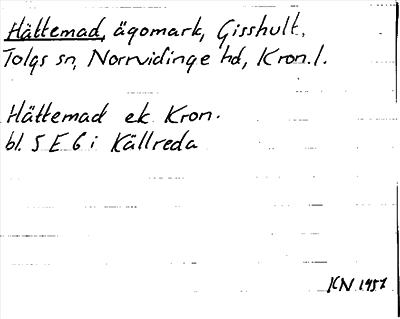 Hättemad, ägomark, Gisshult,
Tolgs sn, Norrvidinge hd, Kron. l.
Hättemad ek. Kron.
bl. 5 E 6 i Källreda
KN 1957